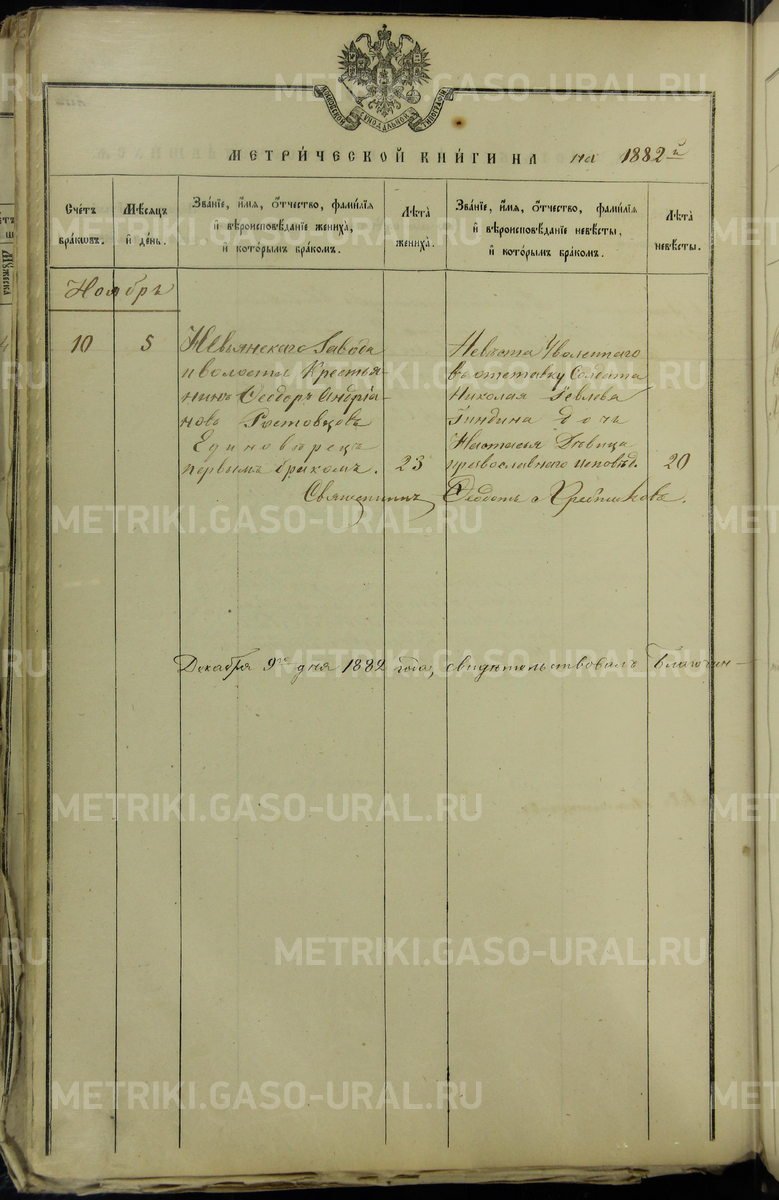 МЕТРИ́ЧЕСКОЙ КНИ́ГИ НА на 1882й
Сче́тъ бра́кѡвъ.
Мѣ́сяцъ и҆ де́нь.
Зва́нїе, и҆́мѧ, ѻ҆́тчество, фами́лїѧ и҆ вѣроисповѣ́данїе жениха̀, и҆ кото́рымъ бра́комъ.
Лѣ́та жениха̀.
Зва́нїе, и҆́мѧ, ѻ҆́тчество, фами́лїѧ и҆ вѣроисповѣ́данїе невѣ́сты, и҆ кото́рымъ бра́комъ.
Лѣ́та невѣ́сты.
Ноябрь
10
5
Невьянскаго Завода
и волости Крестья-
нинъ Ѳеодоръ Андріа-
новъ Ростовцовъ
Единовѣрецъ
первымъ бракомъ.
23
Невѣста Уволеннаго
въ отставку Солдата
Николая
дочь
Настасья Дѣвица
православнаго исповѣд.
20
Священникъ Ѳеодотъ
Декабря 9го дня 1882 года, свидѣтельствовалъ Благочин-
METRIKI.GASO-URAL.RU